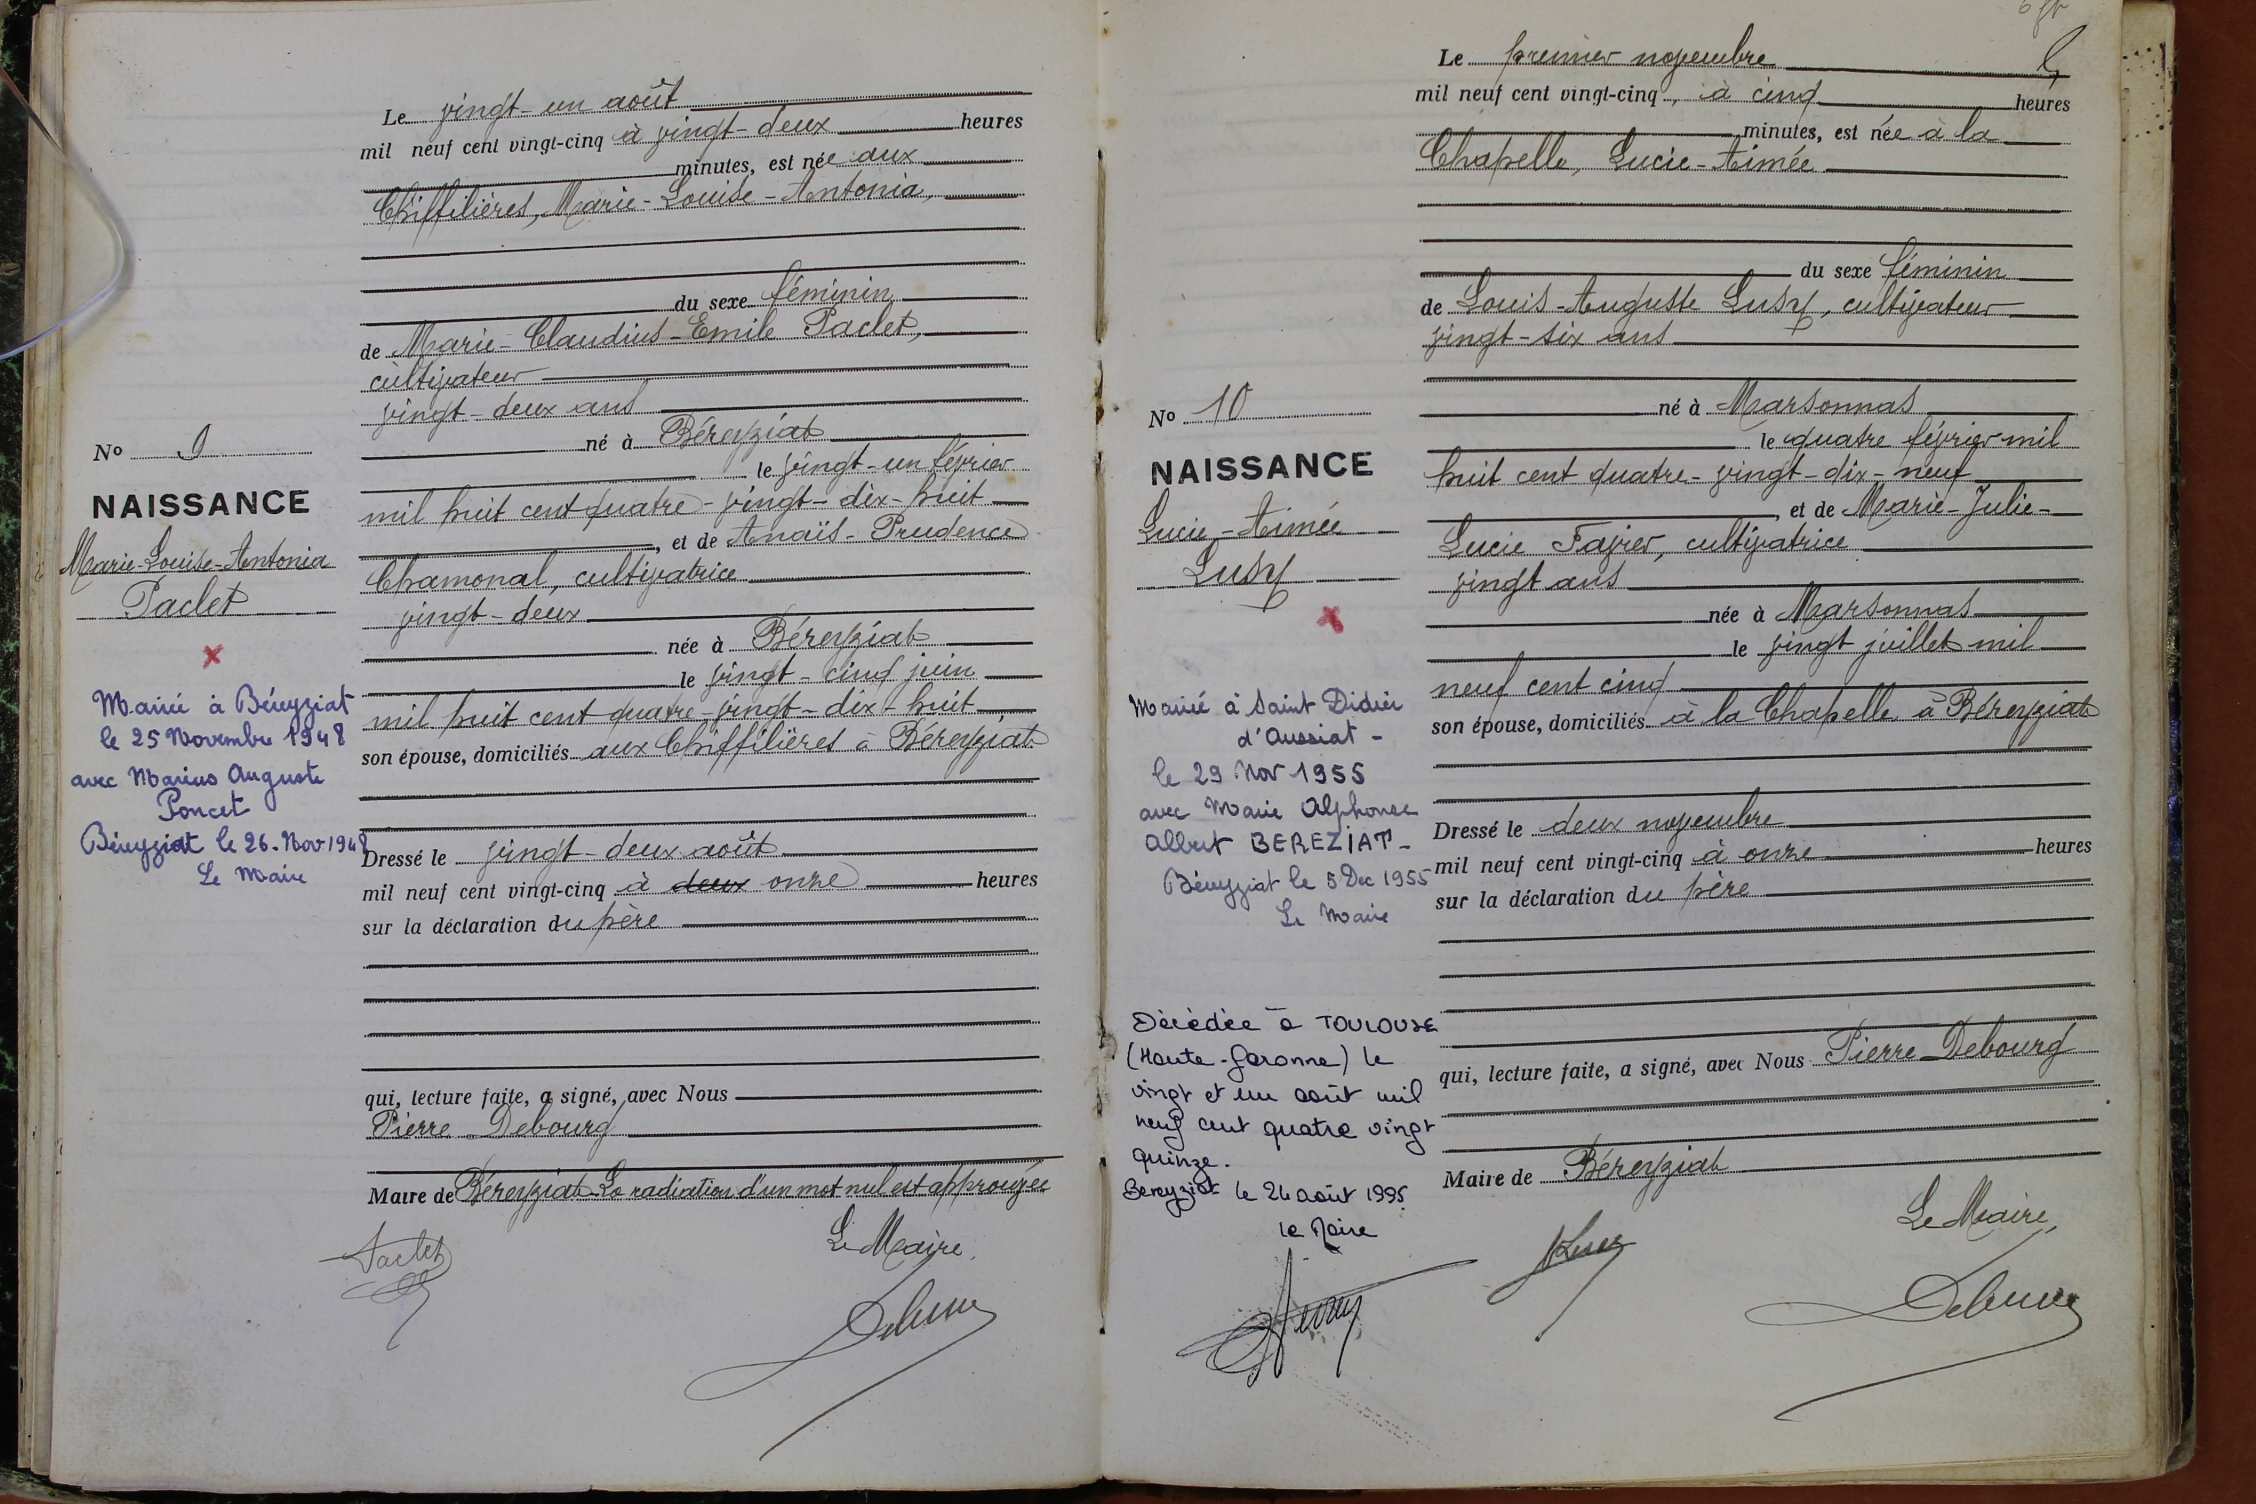 Le vingt-un août
mil neuf cent vingt-cinq à vingt-deux heures
minutes, est née aux
Chiffilières, Marie-Louise-Antonia,
du sexe féminin
de Marie-Claudius-Emile Paclet,
cultivateur
vingt-deux ans
né à Béreyziat
le vingt-un février
mil huit cent quatre-vingt-dix-huit
, et de Anaïs-Prudence
Chamonal, cultivatrice
vingt-deux
née à Béreyziat
le vingt-cinq juin
mil huit cent quatre-vingt-dix-huit
son épouse, domiciliés aux Chiffilières à Béreyziat
Dressé le vingt-deux août
mil neuf cent vingt-cinq à deux onze heures
sur la déclaration du père
qui, lecture faite, a signé, avec Nous
Pierre Debourg
Maire de Béreyziat La radiation d'un mot nul est approuvée
Paclet
Le Maire,
No 9
NAISSANCE
Marie-Louise-Antonia
Paclet
Mariée à Béreyziat
le 25 Novembre 1948
avec Marius Auguste
Poncet
Béreyziat le 26. Nov 1948
Le Maire
Le premier novembre
mil neuf cent vingt-cinq, à cinq heures
minutes, est née à la
Chapelle, Lucie-Aimée
du sexe féminin
de Louis-Auguste Lusy, cultivateur
vingt-six ans
né à Marsonnas
le quatre février mil
huit cent quatre-vingt-dix-neuf
, et de Marie-Julie-
Lucie Favier, cultivatrice
vingt ans
née à Marsonnas
le vingt juillet mil
neuf cent cinq
son épouse, domiciliés à la Chapelle à Béreyziat
Dressé le deux novembre
mil neuf cent vingt-cinq à onze heures
sur la déclaration du père
qui, lecture faite, a signé, avec Nous Pierre Debourg
Maire de Béreyziat
Le Maire,
No 10
NAISSANCE
Lucie-Aimée
Lusy
Mariée à Saint Didier
d'Aussiat -
le 29 Nov 1955
avec Marie Alphonse
Albert BEREZIAT -
Béreyziat le 5 Dec 1955
Le Maire
Décédée à TOULOUSE
(Haute-Garonne) le
vingt et un août mil
neuf cent quatre vingt
quinze.
Bereyziat le 24 août 1995
le Maire